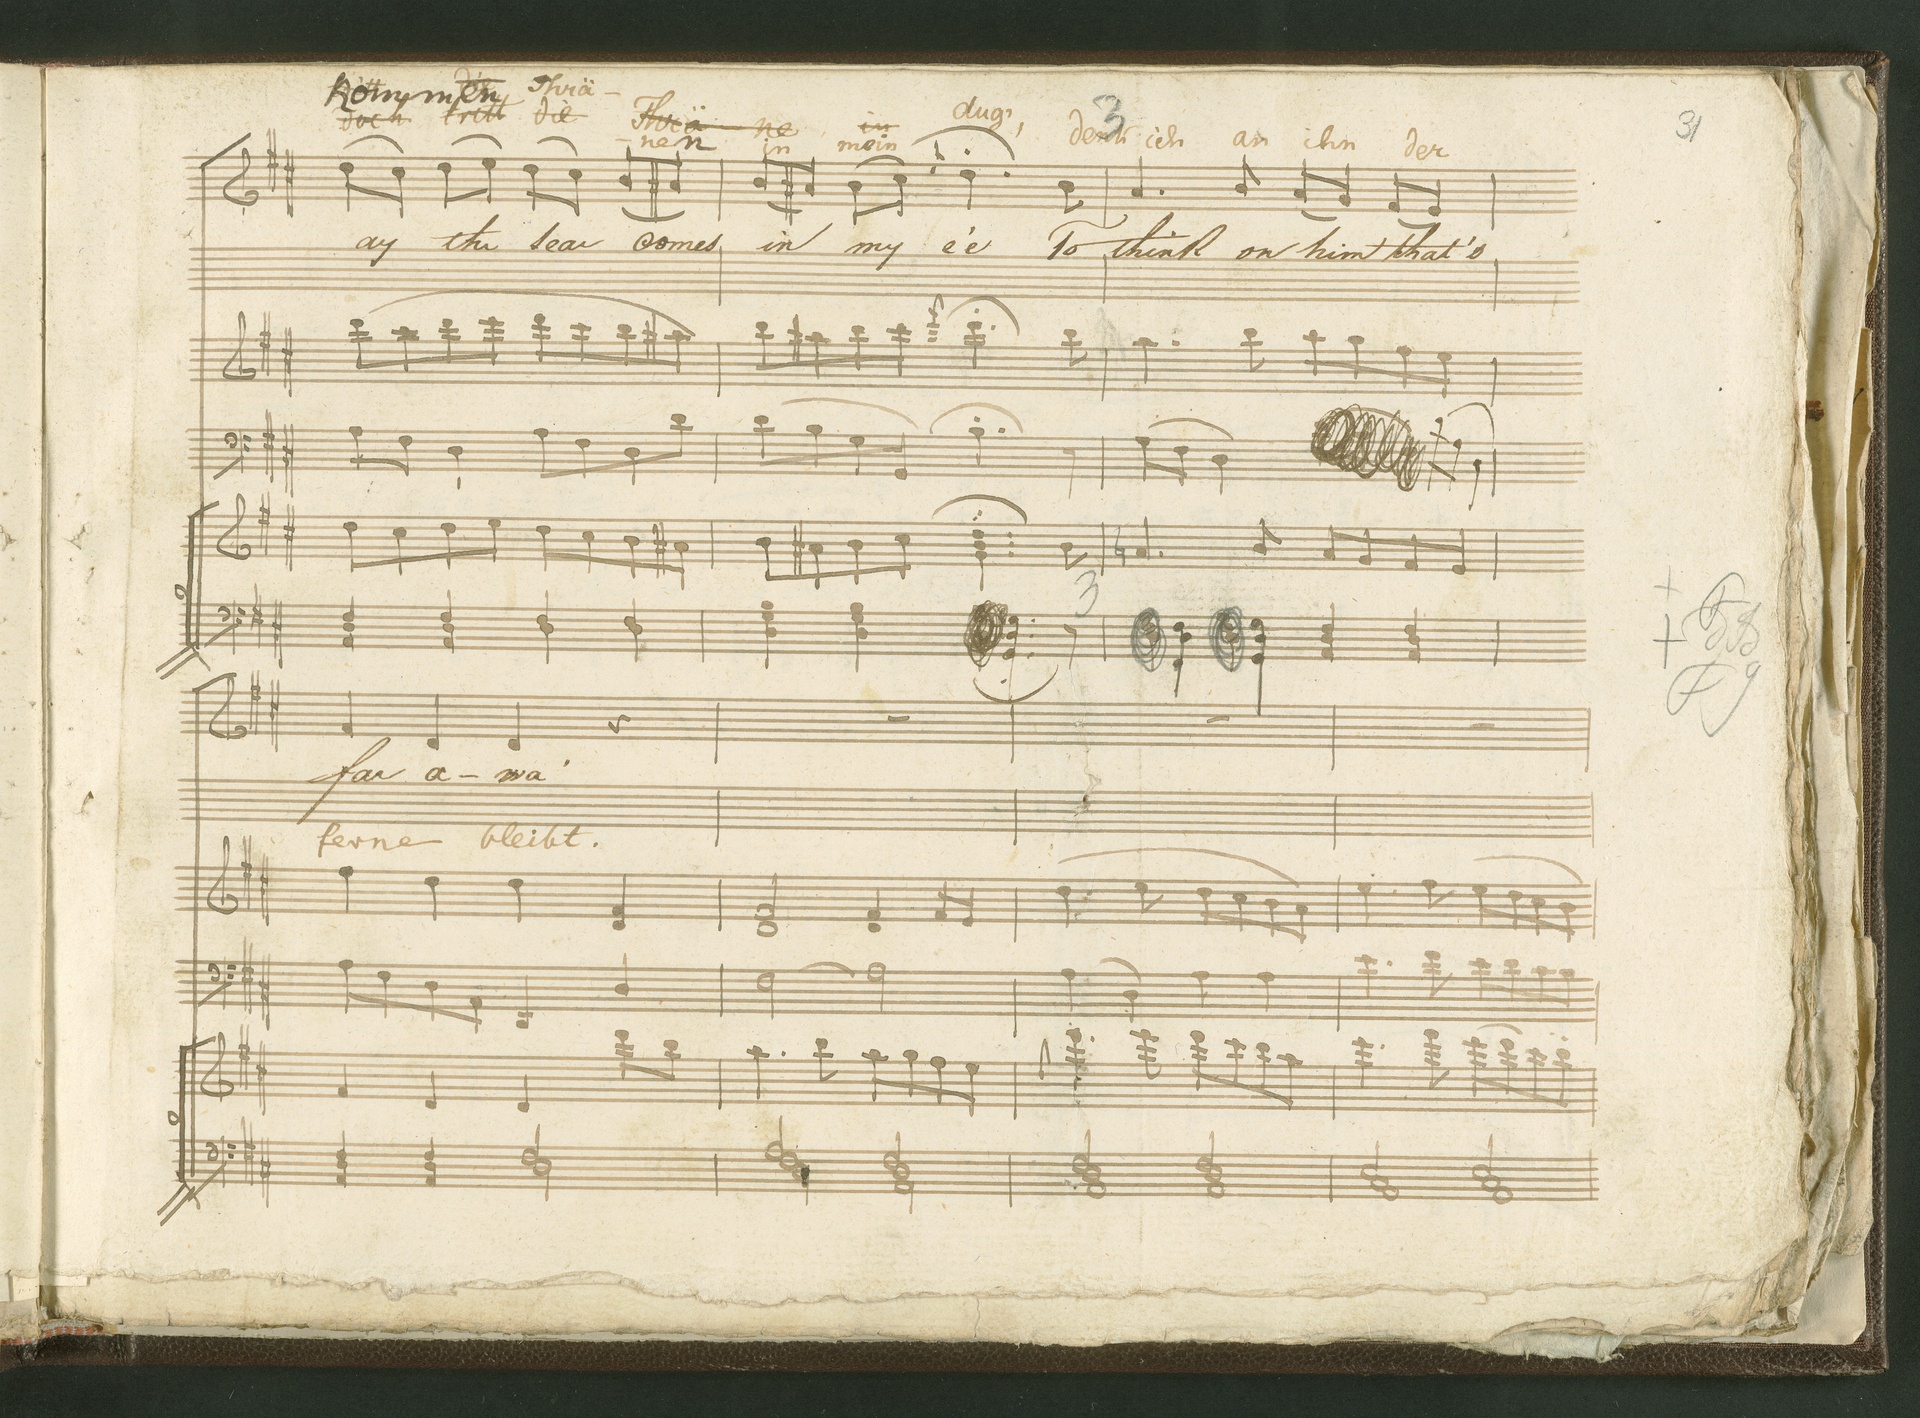 31
Kommen die Thrä-
doch tritt die Thrä - ne in Aug,
nen in mein denk ich an ihn der
3
ay the tear comes in my e'e To think on him that's
3
far a - wa'
ferne bleibt.